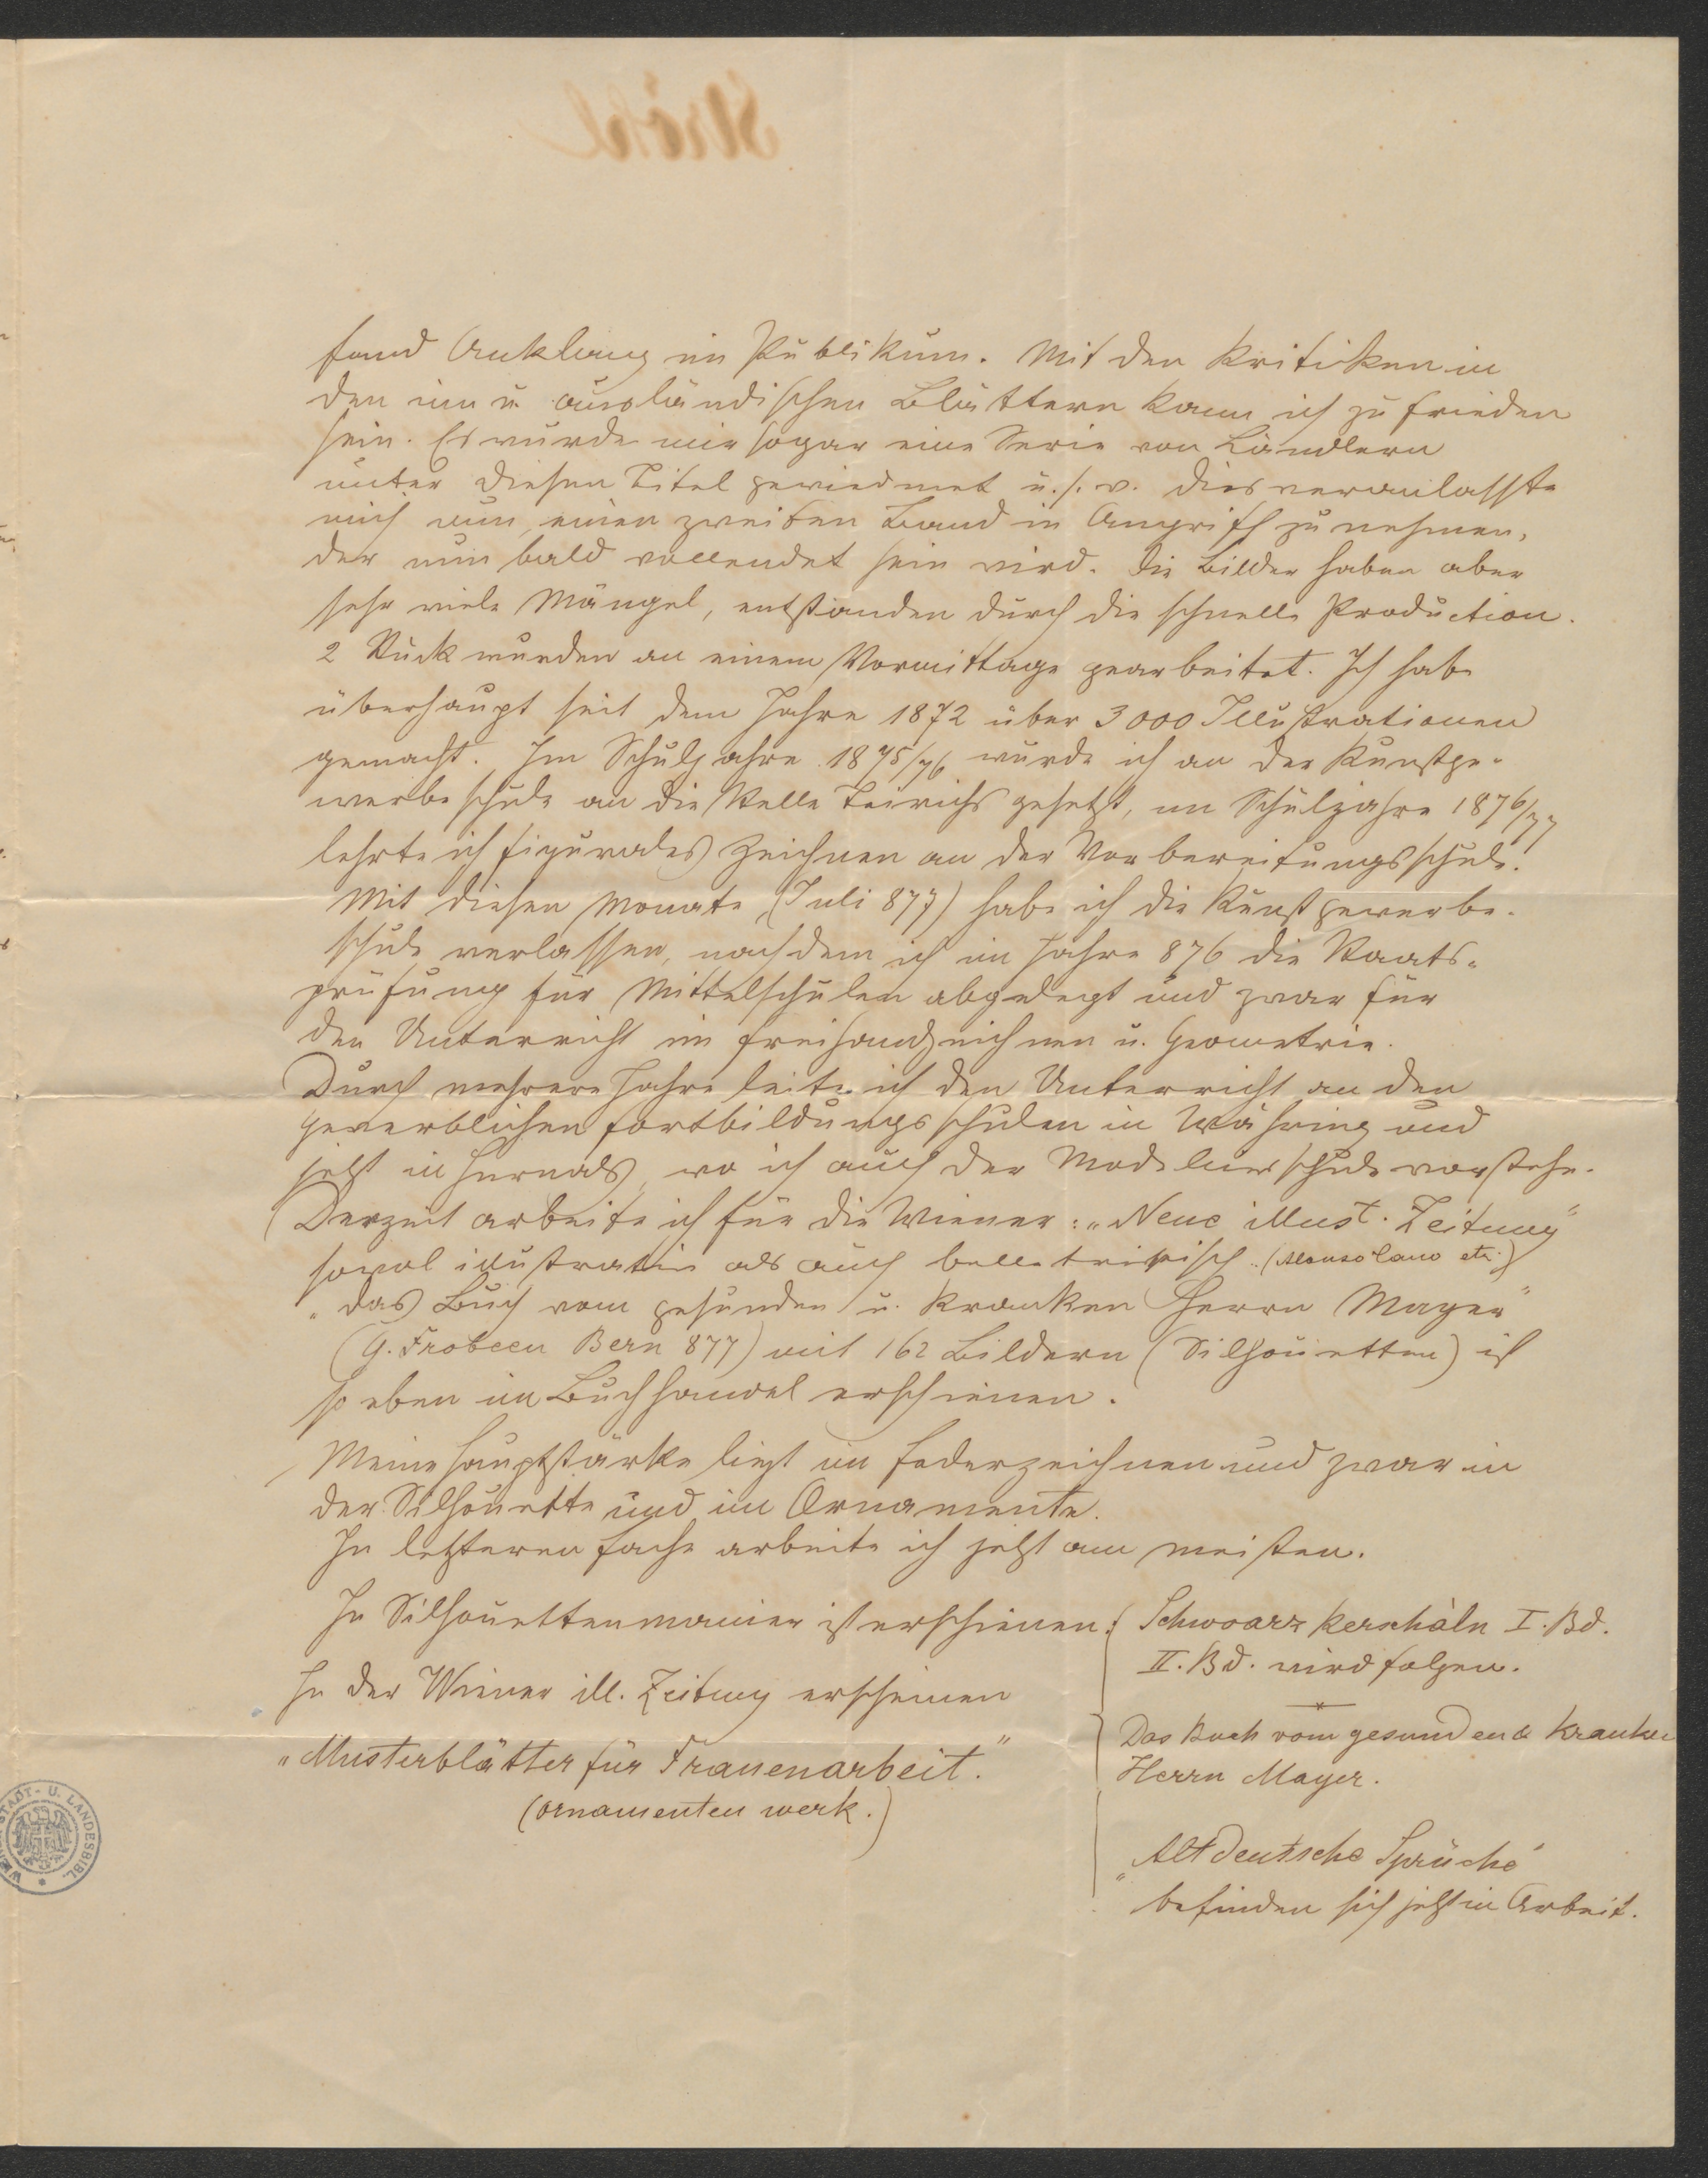 Ströhl
fand Anklang im Publikum. Mit den Kritiken in
den in u. ausländischen Blättern kann ich zufrieden
sein. Es wurde mir sogar eine Serie von Ländlern
unter diesen Titel gewiedmet u. s. w. Dies veranlasste
mich nun, einen zweiten Band in Angriff zu nehmen,
der nun bald vollendet sein wird. Die Bilder haben aber
sehr viele Mängel, entstanden durch die schnelle Production.
2 Stück wurden an einem Vormittage gearbeitet. Ich habe
überhaupt seit dem Jahre 1872 über 3000 Illustrationen
gemacht. Im Schuljahre 1875/76 wurde ich an der Kunstge-
werbeschule an die Stelle Teirichs gesetzt, im Schuljahre 1876/77
lehrte ich figurales Zeichnen an der Vorbereitungsschule.
Mit diesen Monate (Juli 877) habe ich die Kunstgewerbe-
schule verlassen, nachdem ich im Jahre 876 die Staats-
prüfung für Mittelschulen abgelegt und zwar für
den Unterricht im Freihandzeichnen u. Geometrie.
Durch mehrere Jahre leite ich den Unterricht an den
gewerblichen Fortbildungsschulen in Währing und
jetzt in Hernals, wo ich auch der Modelierschule vorstehe.
Derzeit arbeite ich für die Wiener: „Neue illust. Zeitung"
sowol illustrativ als auch belletristisch. etc.)
„Das Buch vom gesunden u. kranken Herrn Mayer"
(G. Frobeen Bern 877) mit 162 Bildern (Silhouetten) ist
so eben im Buchhandel erschienen.
Meine Hauptstärke liegt im Federzeichnen und zwar in
der Silhouette und im Ornamente.
In letzteren Fache arbeite ich jetzt am meisten.
In Silhouettenmanier ist erschienen:
Schwoarz Kerschàln I. Bd.
II. Bd. wird folgen.
Das Buch vom gesunden & kranken
Herrn Mayer.
„Altdeutsche Sprüche"
befinden sich jetzt in Arbeit.
In der Wiener ill. Zeitung erscheinen
„Musterblätter für Frauenarbeit."
(Ornamentenwerk.)
STADT- U. LANDESBIBL.